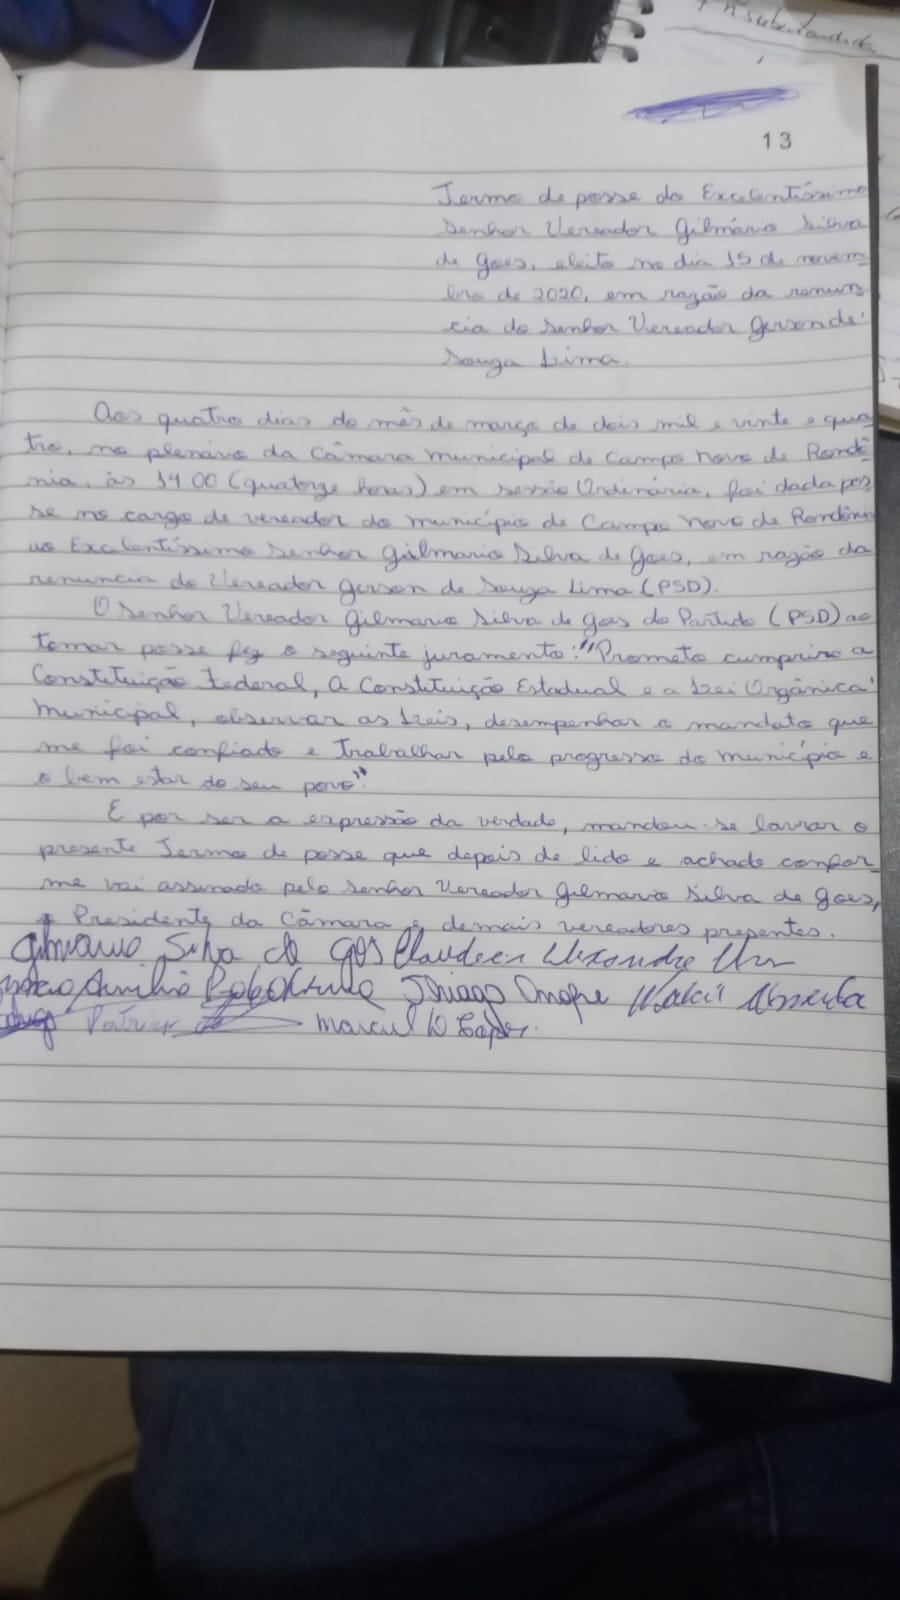 13
Termo de posse do Excelentíssimo
Senhor Vereador Gilmário Silva
de Goes, eleito no dia 15 de novem-
bro de 2020, em razão da renun
cia do Senhor Vereador Gerson de
Souza Lima.
Aos quatro dias do mês de março de dois mil e vinte e qua
tro, no plenário da Câmara Municipal de Campo Novo de Rondô
nia, às 14:00 (quatorze horas) em sessão Ordinária, foi dada pos
se no cargo de vereador do município de Campo Novo de Rondônia
ao Excelentíssimo Senhor Gilmario Silva de Goes, em razão da
renuncia do Vereador Gerson de Souza Lima (PSD).
O Senhor Vereador Gilmario Silva de Goes do Partido (PSD) ao
tomar posse fez o seguinte juramento: "Prometo cumprir a
Constituição Federal, A Constituição Estadual e a Lei Orgânica
Municipal, observar as Leis, desempenhar o mandato que
me foi confiado e Trabalhar pelo progresso do município e
o bem estar do seu povo".
E por ser a expressão da verdade, mandou-se lavrar o
presente Termo de posse que depois de lido e achado confor-
me vai assinado pelo Senhor Vereador Gilmario Silva de Goes,
Presidente da Câmara e demais vereadores presentes.
Gilmario Silva de Goes Claudecir Alexandre
Aurélio Thiago Onofre Valcir Almeida